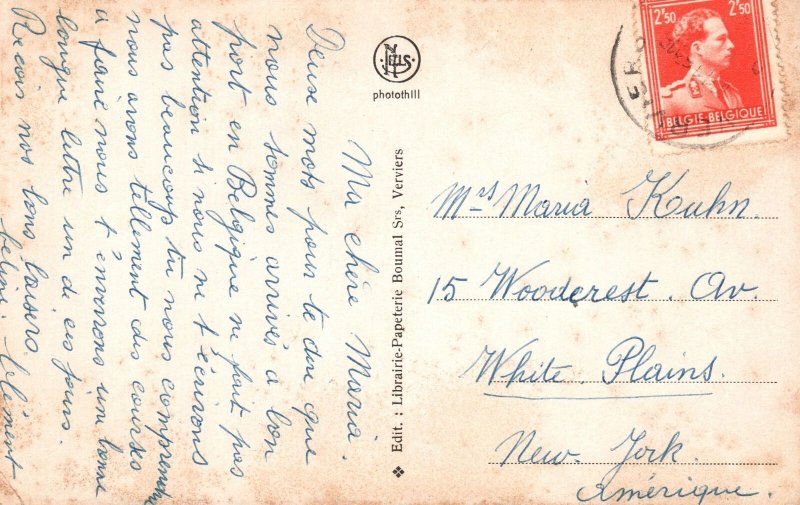 Ma chère Maria.
Deux mots pour te dire que
nous sommes arrivés à bon
port en Belgique ne fait pas
attention si nous ne t'écrivons
pas beaucoup tu nous comprendra
nous avons tellement des courses
à faire nous t'enverrons une bonne
longue lettre un de ces jours.
Recois nos bons baisers
Clément
NELS
photothill
❖ Edit. : Librairie-Papeterie Boumal Srs, Verviers
2F50 2F50
BELGIE-BELGIQUE
Mrs Maria Kuhn.
15 Woodcrest. Av.
White. Plains.
New. York.
Amérique.